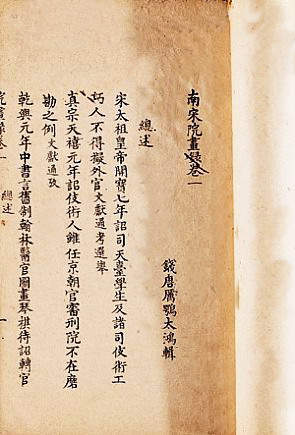 南宋院畫錄卷一
錢唐厲鶚太鴻輯
總述
宋太祖皇帝開寶七年詔司天臺學生及諸司伎術工
巧人不得擬外官文獻通考選舉
真宗天禧元年詔伎術人雖任京朝官審刑院不在磨
勘之例文獻通攷
乾興元年中書言舊制翰林醫官圖畫琴棋待詔轉官
院畫錄卷一
總述
一